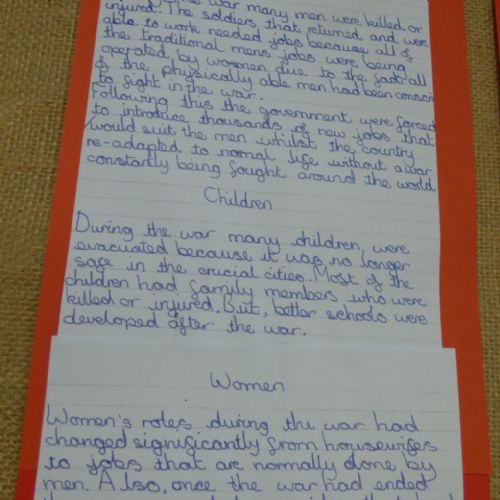 war many men were killed or
injured. The soldiers that returned and were
able to work needed jobs because all of
the traditional mens jobs were being
operated by women due to the fact all
of the physically able men had been conscri
to fight in the war.
Following this the government were forced
to introduce thousands of new jobs that
would suit the men whilst the country
re-adapted to normal life without a war
constantly being fought around the world
Children
During the war many children, were
evacuated because it was no longer
safe in the crucial cities. Most of the
children had family members who were
killed or injured. But, better schools were
developed after the war.
Women
Women's roles during the war had
changed significantly from housewifes
to jobs that are normally done by
men. Also, once the war had ended